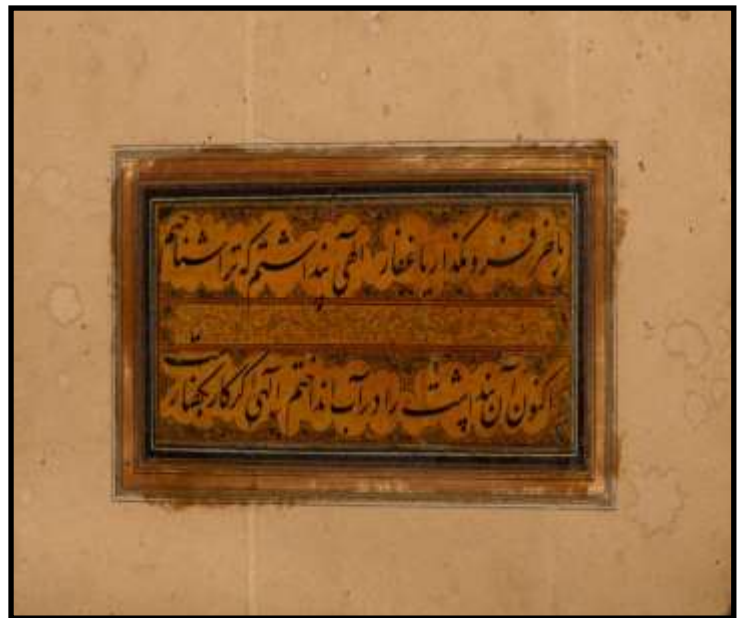 فرو مگذار یا غفار الهی پنداشتم که ترا شناختم
اکنون آن پنداشت را در آب انداختم الهی اگر کار بگفتار است